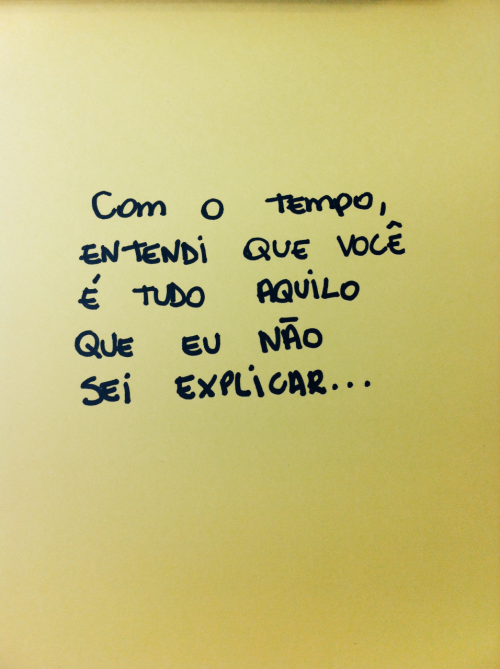 Com o TEMPO,
ENTENDi QUE VOCÊ
É TUDO AQUiLO
QUE EU NÃO
SEi EXPLiCAR...